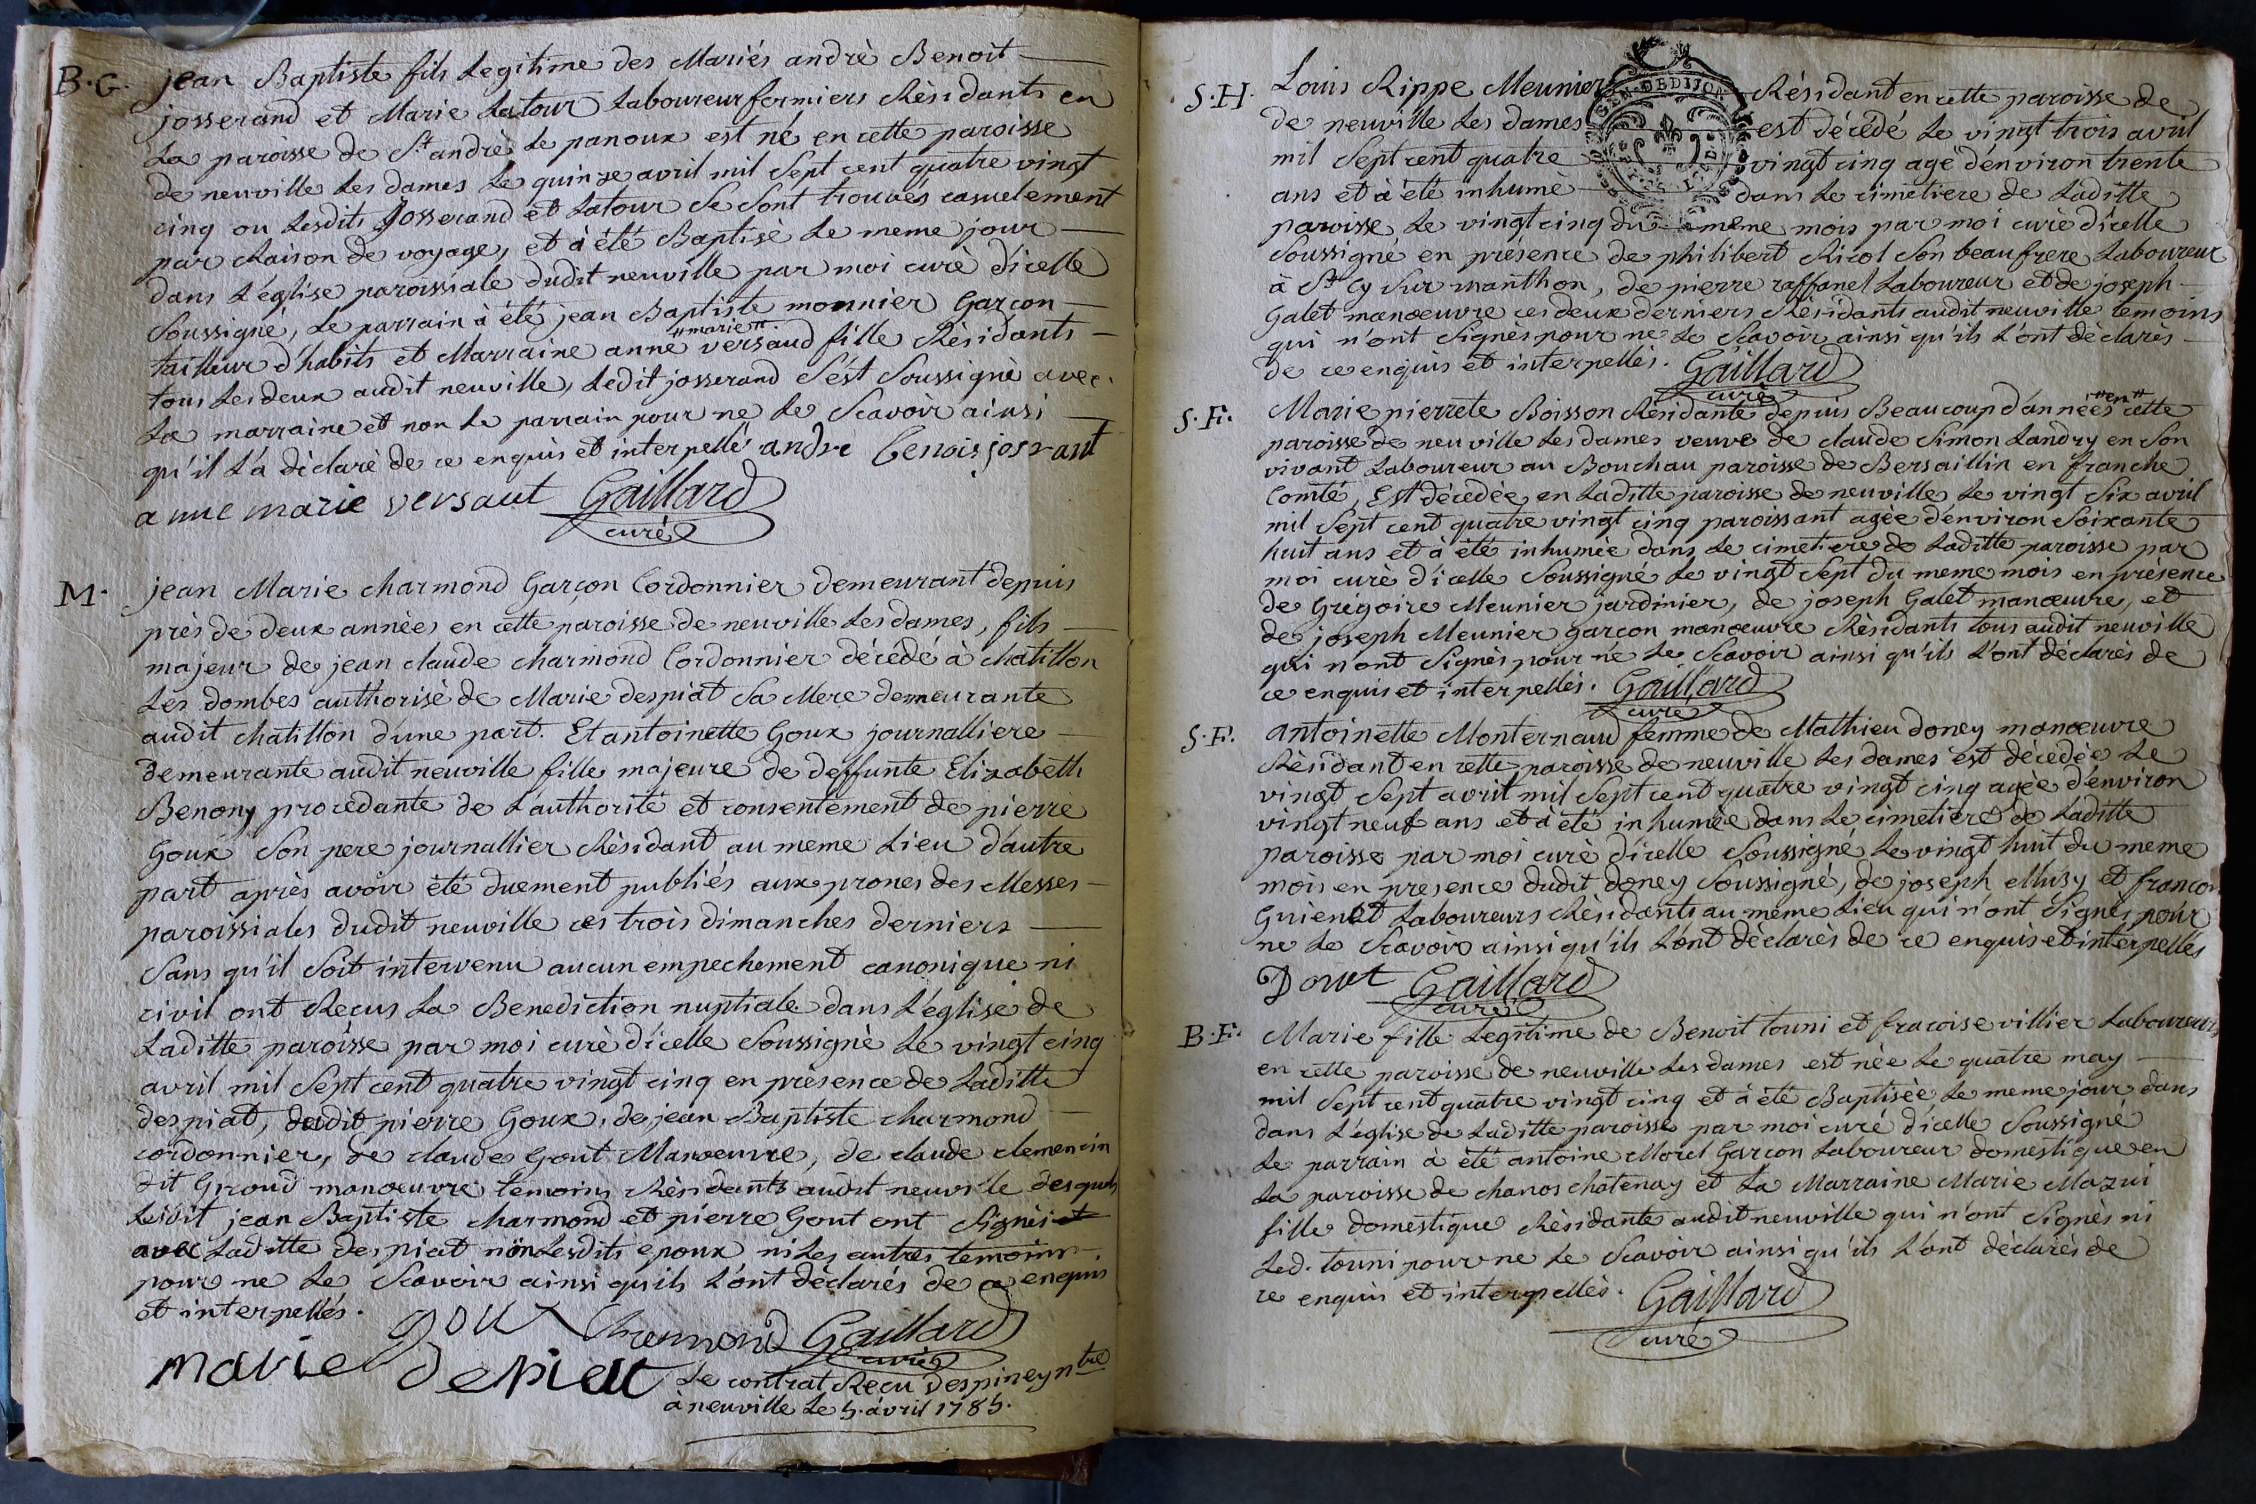 B.G. jean Baptiste fils Legitime des Mariés andrè Benoit
josserand et Marie Latour Laboureur fermiers Résidants en
La paroisse de St andrè Le panoux est né en cette paroisse
de neuville Les dames Le quinze avril mil Sept cent quatre vingt
cinq ou Lesdits Josserand et Latour Se Sont trouvés casuelement
par Raison de voyage, et à été Baptisè Le meme jour
dans L'église paroissiale dudit neuville par moi curè d'icelle
Soussigné, Le parrain à été jean Baptiste monnier Garçon
"marie"
tailleur d'habits et Marraine anne versaud fille Résidants
tous Les deux audit neuville, Ledit josserand S'ést Soussignè avec
La marraine et non Le parrain pour ne Le Scavoir ainsi
qu'il L'a déclarè de ce enquis et interpellé andre benois josrant
anne marie versaut Gaillard
curè
M. jean Marie charmond Garçon Cordonnier demeurant depuis
près de deux annèes en cette paroisse de neuville Les dames, fils
majeur de jean claude charmond Cordonnier décédé à chatillon
Les dombes authorisè de Marie despiat Sa Mere demeurante
audit chatillon d'une part. Et antoinette Goux journalliere
demeurante audit neuville fille majeure de deffunte Elizabeth
Benony procèdante de L'authorité et consentement de pierre
Goux Son pere journallier Résidant au meme Lieu d'autre
part après avoir été duement publiés aux prones des Messes
paroissiales dudit neuville ces trois dimanches derniers
Sans qu'il Soit intervenu aucun empechement canonique ni
civil ont Recus La Benediction nuptiale dans L'église de
Laditte paroisse par moi curè d'icelle Soussignè Le vingt cinq
avril mil Sept cent quatre vingt cinq en prèsence de Laditte
despiat, dudit pierre Goux, de jean Baptiste charmond
cordonnier, de claude Gout Manoeuvre, de claude clemencin
dit Giroud manoeuvre temoins Résidants audit neuville desquels
Ledit jean Baptiste charmond et pierre Gout ont Signés
avec Laditte despiat non Lesdits epoux ni Les autres temoins
pour ne Le Scavoir ainsi qu'ils L'ont dèclarés de ce enquis
et interpellés.
goux Charmond Gaillard
curè
marie depiat
Le contrat Recu Despiney ntre
à neuville Le 5. avril 1785.
S.H. Louis Rippe Meunier Résidant en cette paroisse de
de neuville Les dames est décédé Le vingt trois avril
mil Sept cent quatre vingt cinq agé d'énviron trente
ans et à été inhumè dans Le cimetiere de Laditte
paroisse Le vingt cinq du meme mois par moi curè d'icelle
Soussigné en présence de philibert Ricol Son beaufrere Laboureur
à St Cy Sur manthon, de pierre raffanel Laboureur et de joseph
Galet manoeuvre ces deux derniers Résidants audit neuville temoins
qui n'ont Signès pour ne Le Scavoir ainsi qu'ils L'ont dèclarès
de ce enquis et interpellés. Gaillard
curè
"en"
S.F. Marie pierrete Boisson Résidante depuis Beaucoup d'années cette
paroisse de neuville Les dames veuve de claude Simon Landry en Son
vivant Laboureur au Bouchau paroisse de Bersaillin en franche
Comté, Est décedée en Laditte paroisse de neuville Le vingt Six avril
mil Sept cent quatre vingt cinq paroissant agée d'énviron Soixante
huit ans et à été inhumèe dans Le cimetiere de Laditte paroisse par
moi curè d'icelle Soussigné Le vingt Sept du meme mois en présence
de Grégoire Meunier jardinier, de joseph Galet manoeuvre, et
de joseph Meunier garcon manoeuvre Résidants tous audit neuville
qui n'ont Signès pour ne Le Scavoir ainsi qu'ils L'ont déclarés de
ce enquis et interpellés. Gaillard
curè
S.F. antoinette Monternaud femme de Mathieu doney manoeuvre
Résidant en cette paroisse de neuville Les dames est décedèe Le
vingt Sept avril mil Sept cent quatre vingt cinq agée d'énviron
vingt neuf ans et à été inhumèe dans Le cimetiere de Laditte
paroisse par moi curè d'icelle Soussigné Le vingt huit du meme
mois en presence dudit doney Soussigné, de joseph Musy et francois
Guienet Laboureurs Résidants au meme Lieu qui n'ont Signés pour
ne Le Scavoir ainsi qu'ils L'ont dèclarès de ce enquis et interpellés
Gaillard
curè
B.F. Marie fille Legitime de Benoit touni et fracoise villier Laboureurs
en cette paroisse de neuville Les dames est nèe Le quatre may
mil Sept cent quatre vingt cinq et à été Baptisèe Le meme jour dans
dans L'église de Laditte paroisse par moi curé d'icelle Soussignè
Le parrain à été antoine Morel Garcon Laboureur domestique en
La paroisse de chanos chatenay et La Marraine Marie Mazui
fille domestique Résidante audit neuville qui n'ont Signés ni
Led. touni pour ne Le Scavoir ainsi qu'ils L'ont déclarés de
ce enquis et interpellès. Gaillard
curè